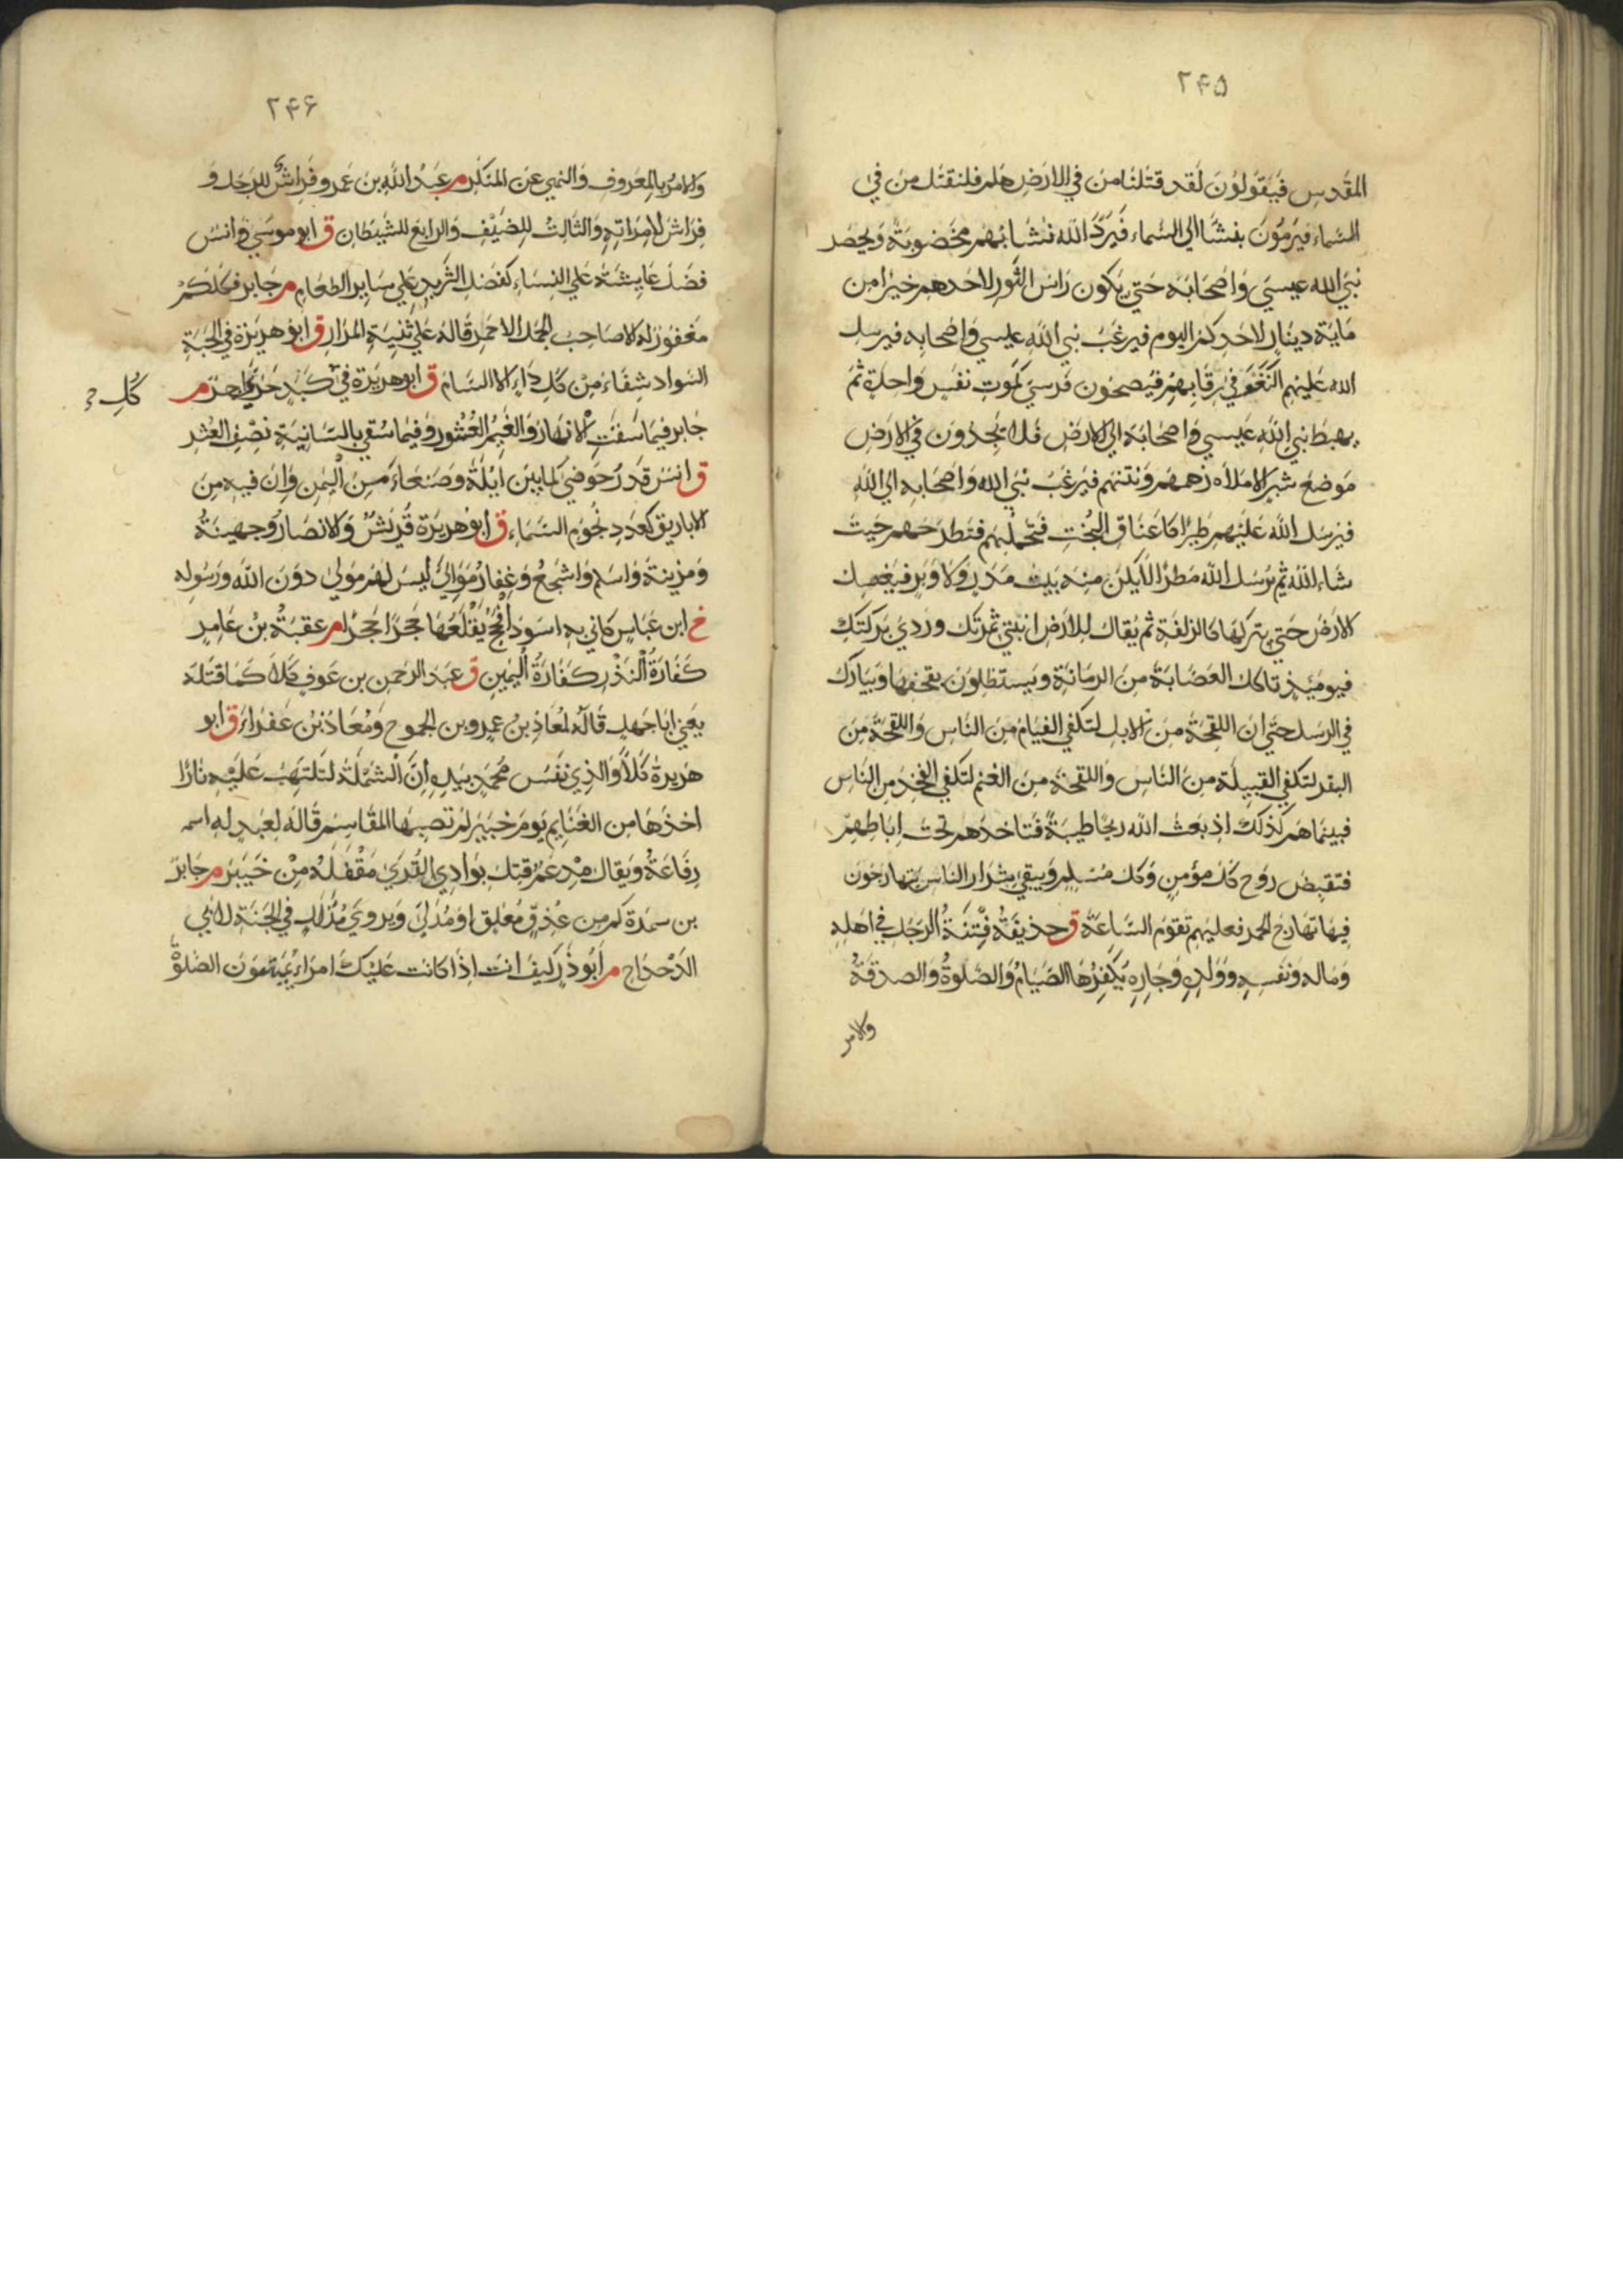 ۲۴۵
المقدس فيقولون لقد قتلنا من في الارض هلم فلنقتل من في
السماء فيرمون بنشابهم الي السماء فيرد الله نشابهم مخضوبة ويحصر
نبي الله عيسي واصحابه حتي يكون راس الثور لاحدهم خيرا من
ماية دينار لاحدكم اليوم فيرغب نبي الله عيسي واصحابه فيرسل
الله عليهم النغف في رقابهم فيصبحون فرسي كموت نفس واحدة ثم
يهبط نبي الله عيسي واصحابه الي الارض فلا يجدون في الارض
موضع شبر الا ملاه زهمهم ونتنهم فيرغب نبي الله واصحابه الي الله
فيرسل الله عليهم طيرا كاعناق البخت فتحملهم فتطرحهم حيث
شاء الله ثم يرسل الله مطرا لا يكن منه بيت مدر ولا وبر فيغسل
الارض حتي يتركها كالزلفة ثم يقال للارض انبتي ثمرتك وردي بركتك
فيومئذ تاكل العصابة من الرمانة ويستظلون بقحفها ويبارك
في الرسل حتي ان اللقحة من الابل لتكفي الفيام من الناس واللقحة من
البقر لتكفي القبيلة من الناس واللقحة من الغنم لتكفي الفخذ من الناس
فبينما هم كذلك اذ بعث الله ريحا طيبة فتاخذهم تحت اباطهم
فتقبض روح كل مؤمن وكل مسلم ويبقي شرار الناس يتهارجون
فيها تهارج الحمر فعليهم تقوم الساعة ق حذيفة فتنة الرجل في اهله
وماله ونفسه وولده وجاره يكفرها الصيام والصلوة والصدقة
والامر
۲۴۶
والامر بالمعروف والنهي عن المنكر م عبد الله بن عمرو فراش للرجل و
فراش لامراته والثالث للضيف والرابع للشيطان ق ابو موسي وانس
فضل عايشة علي النساء كفضل الثريد علي ساير الطعام م جابر فكلكم
مغفور له الا صاحب الجمل الاحمر قاله علي ثنية المرار ق ابو هريرة في الحبة
السواد شفاء من كل داء الا السام ق ابو هريرة في كبد حري اجر م
كل
جابر فيما سقت الانهار والغيم العشور وفيما سقي بالسانية نصف العشر
ق انس قدر حوضي كما بين ايلة وصنعاء من اليمن وان فيه من
الاباريق كعدد نجوم السماء ق ابو هريرة قريش والانصار وجهينة
ومزينة واسلم واشجع وغفار موالي ليس لهم مولي دون الله ورسوله
خ ابن عباس كاني به اسود افحج يقلعها حجرا حجرا م عقبة بن عامر
كفارة النذر كفارة اليمين ق عبد الرحمن بن عوف كلا كما قتله
يعني ابا جهل قاله لمعاذ بن عمرو بن الجموح ومعاذ بن عفراء ق ابو
هريرة كلا والذي نفس محمد بيده ان الشملة لتلتهب عليه نارا
اخذها من الغنايم يوم خيبر لم تصبها المقاسم قاله لعبد له اسمه
رفاعة ويقال مدعم قتل بوادي القري مقفله من خيبر م جابر
بن سمرة كم من عذق معلق او مدلي ويروي مذلل في الجنة لابي
الدحداح م ابو ذر كيف انت اذا كانت عليك امراء يميتون الصلوة